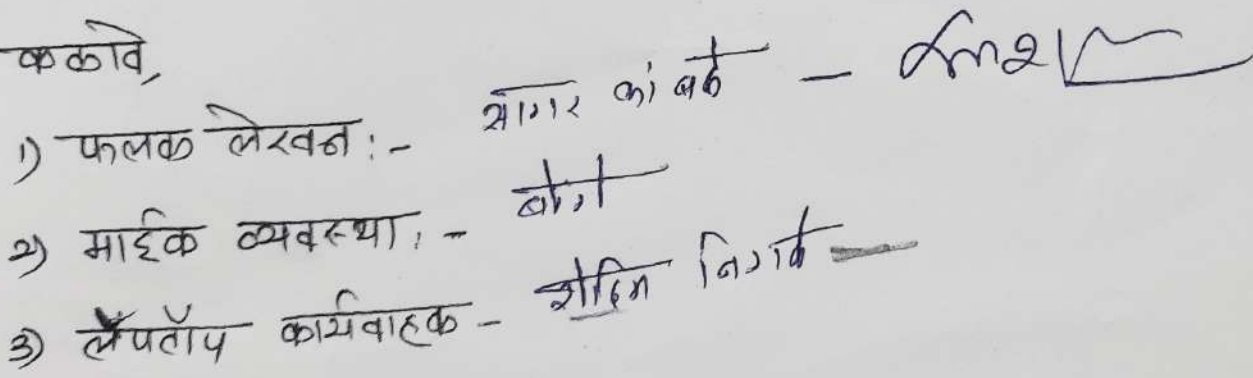 कळावे,
१) फलक लेखन :- सागर कांबळे -
२) माईक व्यवस्था :-
३) लॅपटॉप कार्यवाहक -